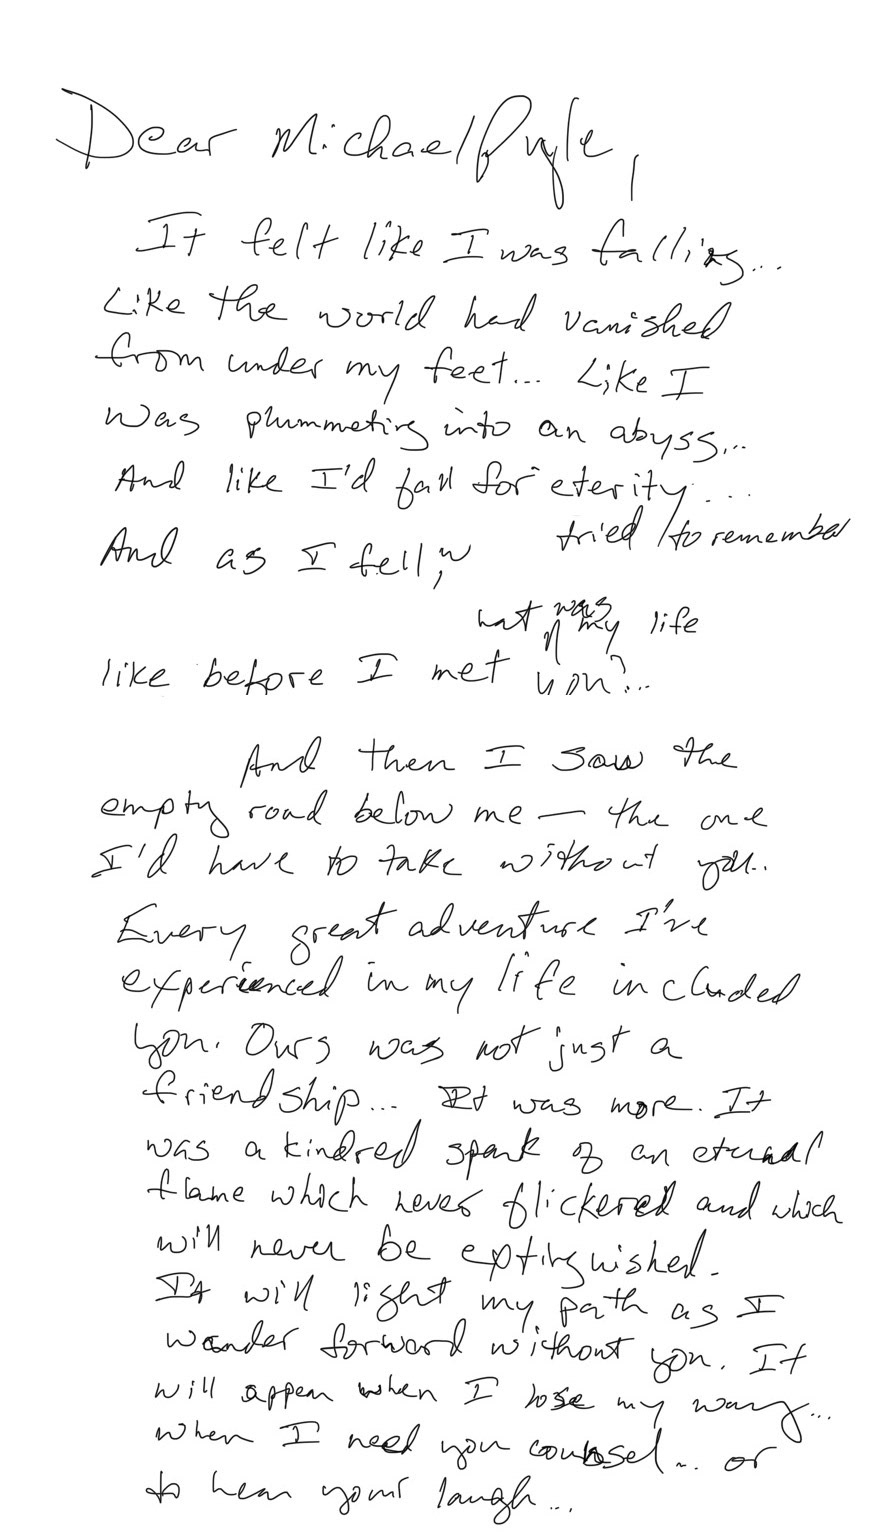 Dear Michael Pyle,
It felt like I was falling...
Like the world had vanished
from under my feet... Like I
was plummeting into an abyss...
And like I'd fall for eterity...
And as I fell, tried to remember
what was my life
like before I met you?...
And then I saw the
empty road below me — the one
I'd have to take without you..
Every great adventure I've
experienced in my life included
you. Ours was not just a
friendship... It was more. It
was a kindred spark of an eternal
flame which never flickered and which
will never be extinguished.
It will light my path as I
wander forward without you. It
will appear when I lose my way...
when I need you counsel... or
to hear your laugh...